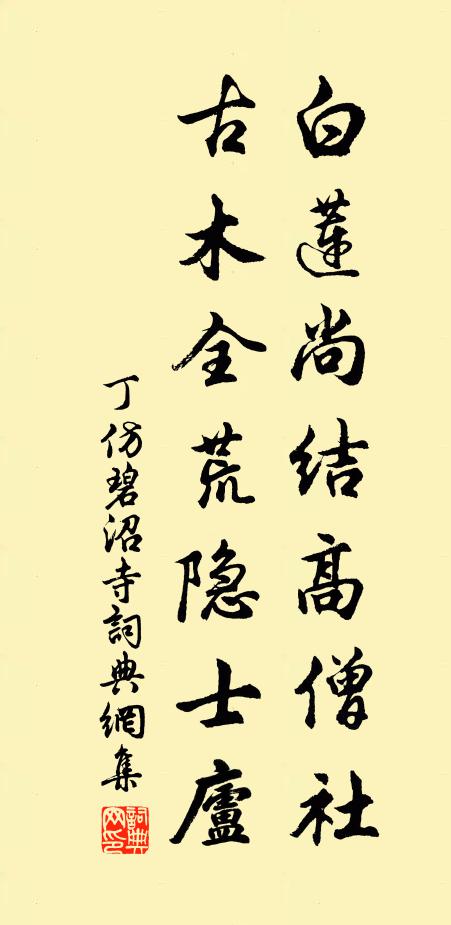 白蓮尚结高僧社
古木全荒隐士廬
丁仿碧沼寺詞典網集
詞典网印